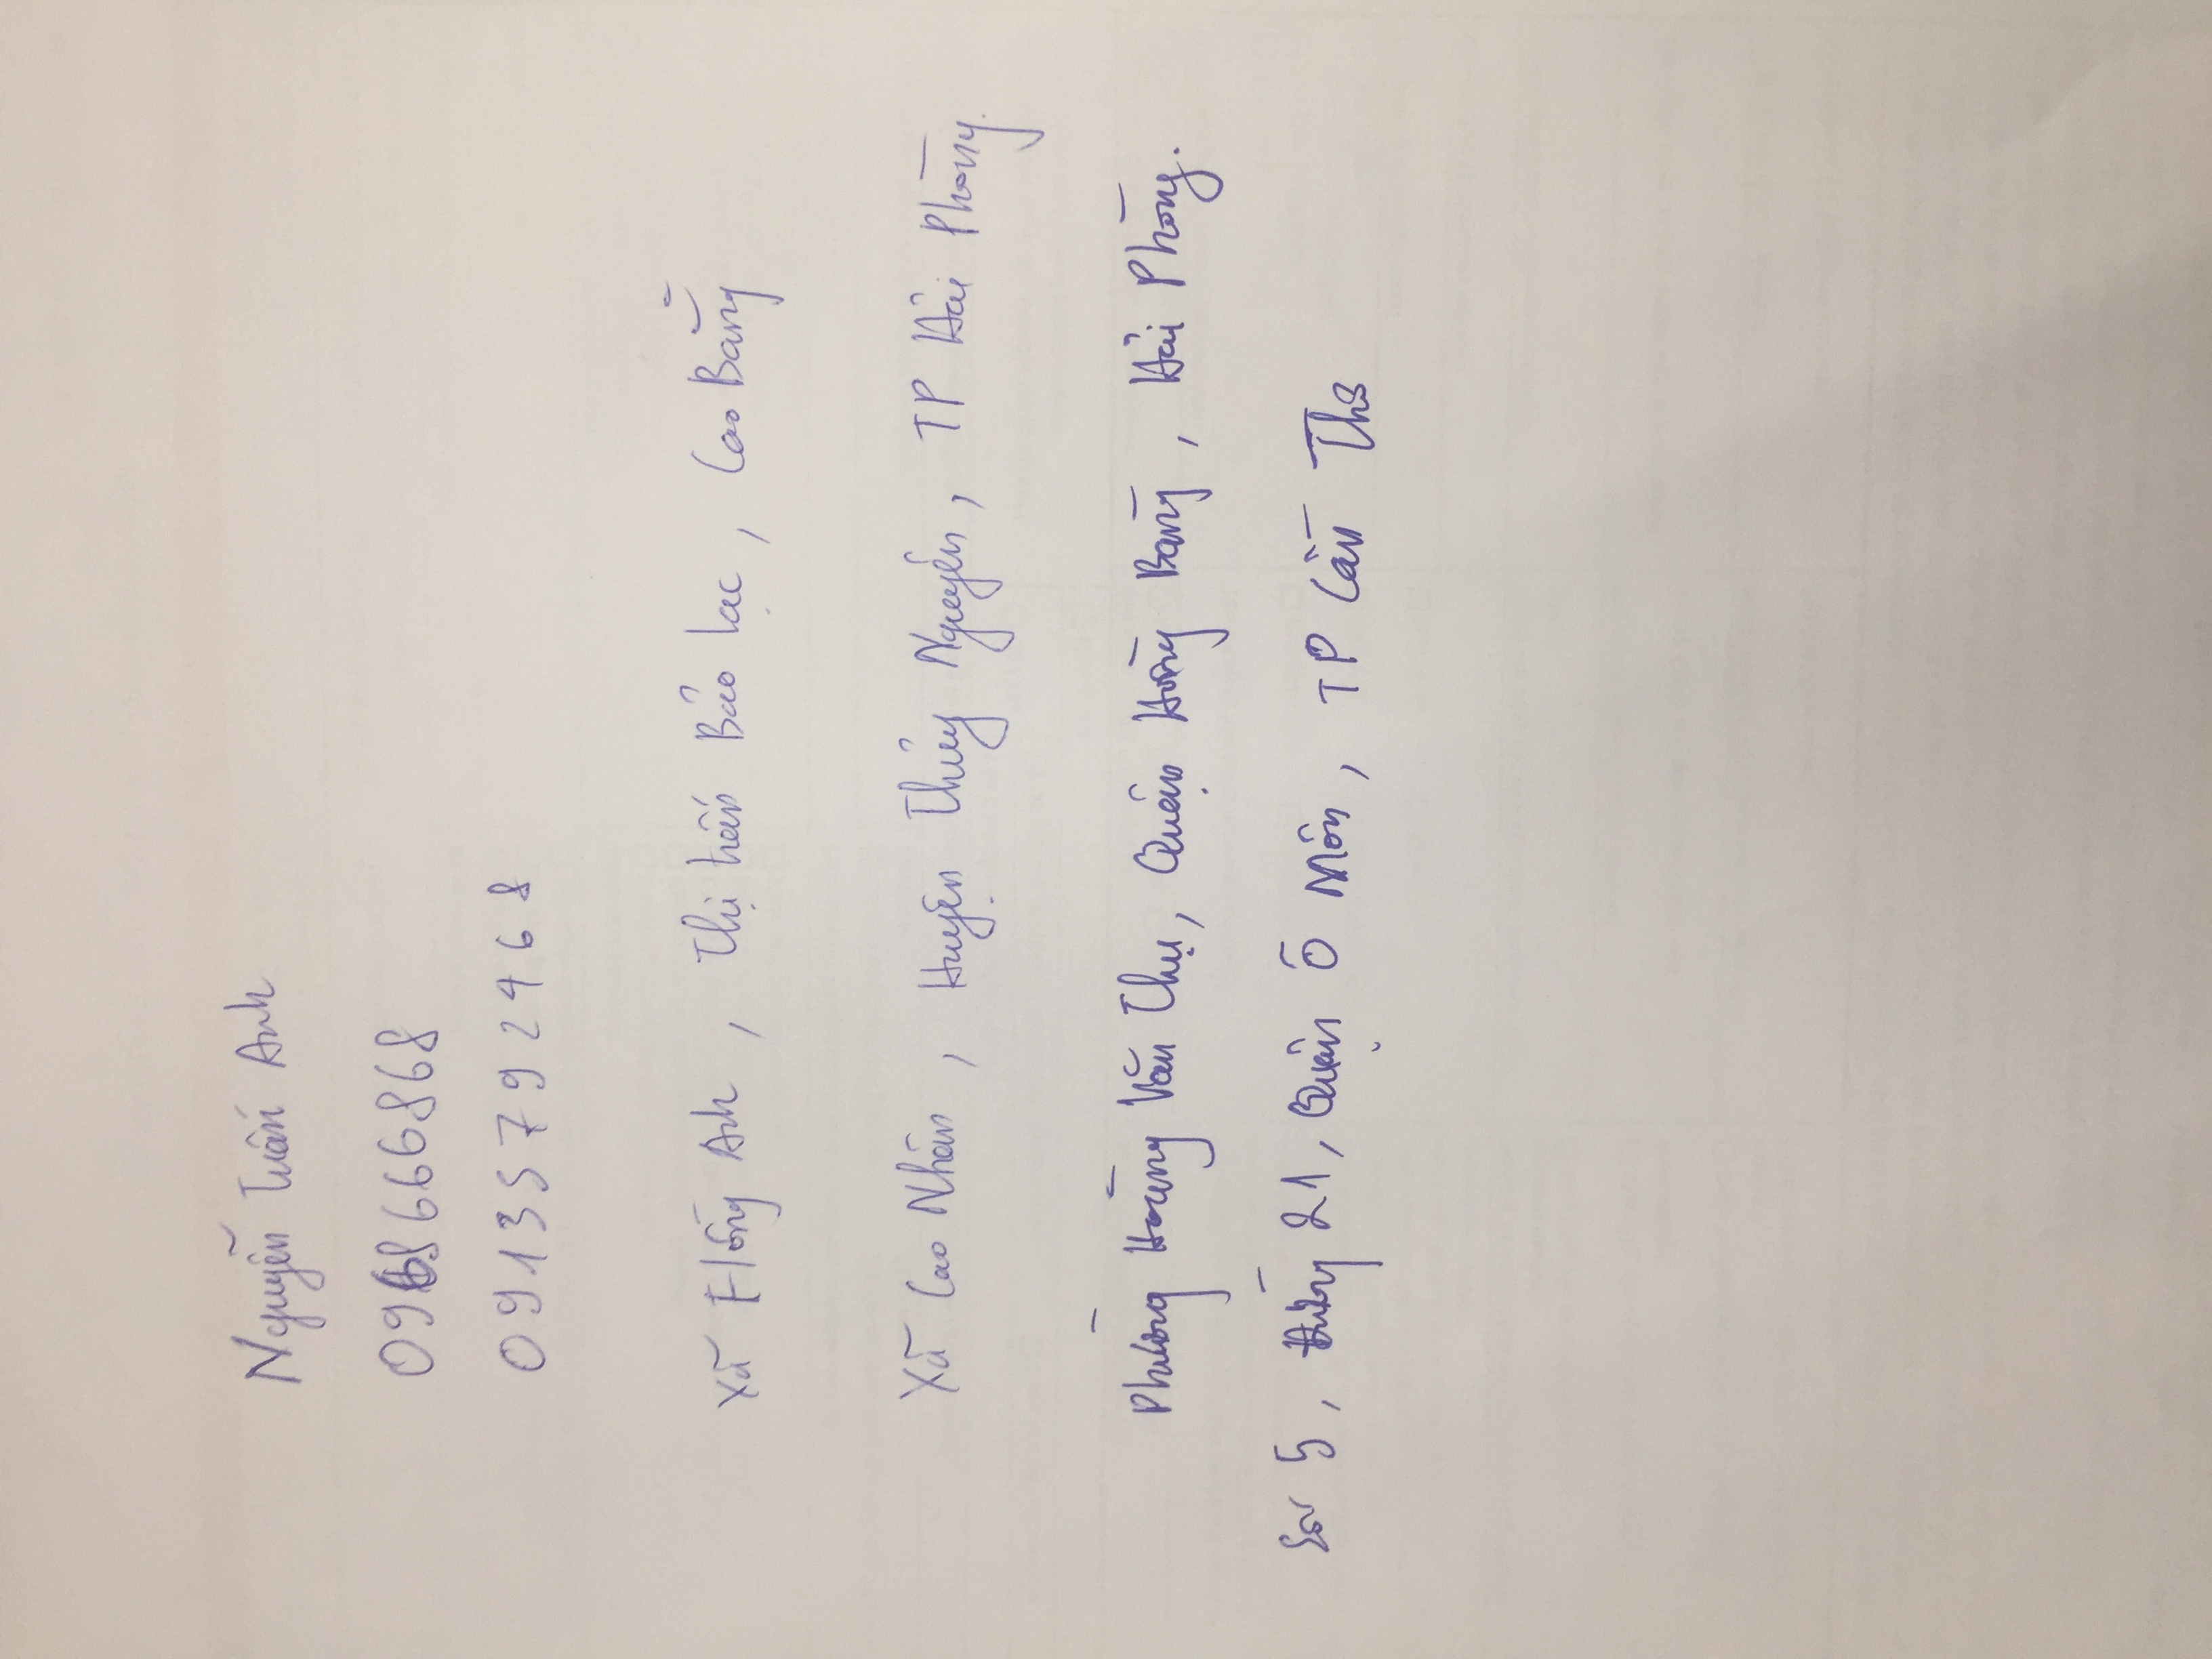 Nguyễn Tuấn Anh
0968666868
09135792468
Xã Hồng Anh, Thị trấn Bảo Lạc, Cao Bằng
Xã Cao Nhân, Huyện Thủy Nguyên, TP Hải Phòng.
Phường Hoàng Văn Thụ, Quận Hồng Bàng, Hải Phòng.
Số 5, Đường 21, Quận Ô Môn, TP Cần Thơ